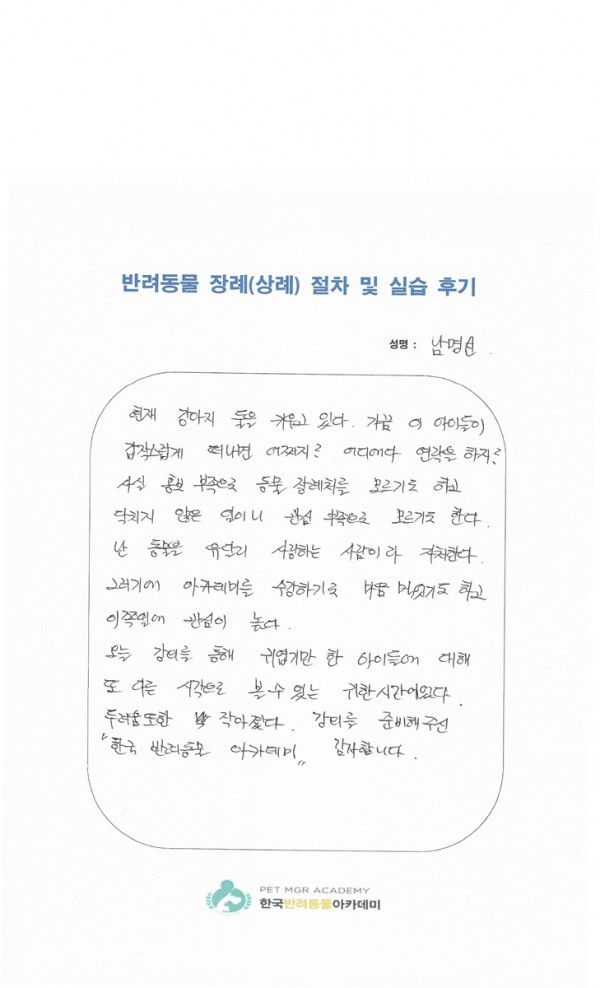 반려동물 장례(상례) 절차 및 실습 후기
성명 : 남명선
현재 강아지 둘을 키우고 있다. 가끔 이 아이들이
갑작스럽게 떠나면 어쩌지? 어디에다 연락을 하지?
사실 홍보 부족으로 동물 장례처를 모르기도 하고
닥치지 않은 일이니 관심 부족으로 모르기도 한다.
난 동물을 유달리 사랑하는 사람이라 자처한다.
그러기에 아카데미를 수강하기로 마음 먹었기도 하고
이쪽일에 관심이 높다.
오늘 강의를 통해 귀엽기만 한 아이들에 대해
또 다른 시각으로 볼 수 있는 귀한시간이었다.
두려움또한 작아졌다. 강의를 준비해주신
"한국 반려동물 아카데미" 감사합니다.
PET MGR ACADEMY
한국반려동물아카데미